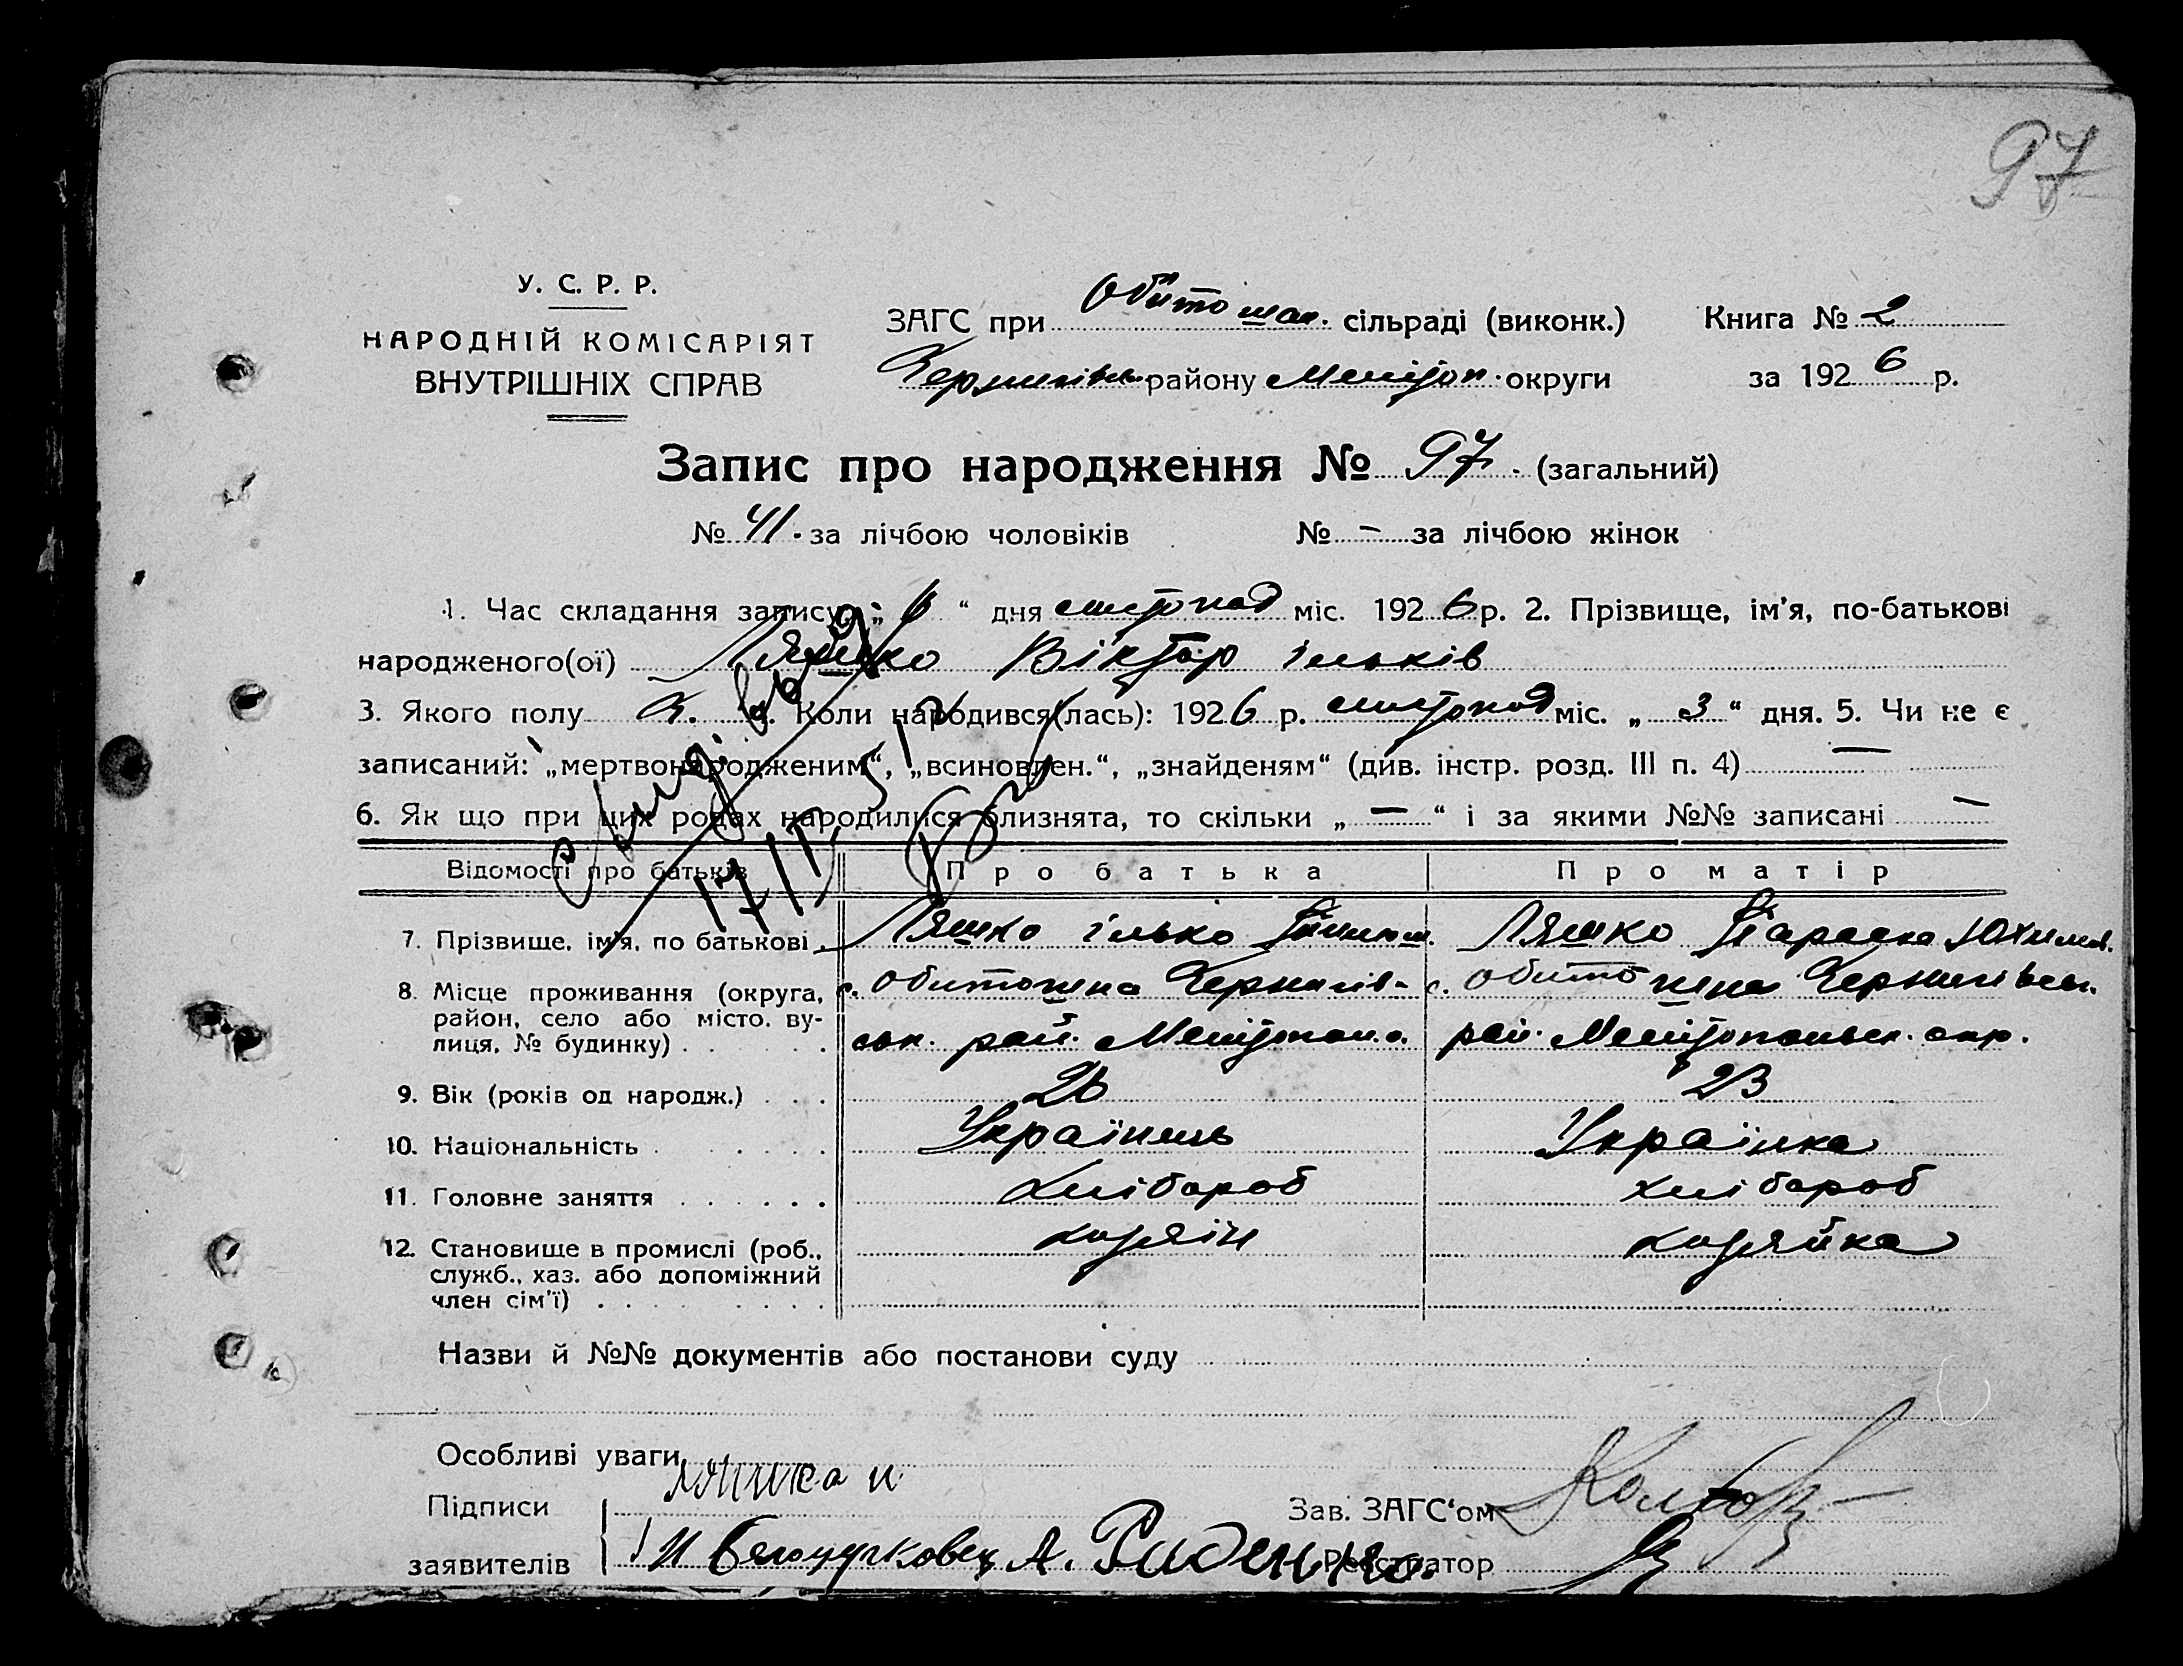 97
У. С. Р. Р.
НАРОДНІЙ КОМІСАРІЯТ
ВНУТРІШНІХ СПРАВ
ЗАГС при Обиточан. сільраді (виконк.) Книга № 2
Чернигівськ. району Мелітоп. округи за 1926 р.
Запис про народження № 97. (загальний)
№ 41. за лічбою чоловіків № – за лічбою жінок
1. Час складання запису „ 6 “ дня листопад міс. 1926 р. 2. Прізвище, ім'я, по-батькові
народженого(ої) Ляшко Віктор Ільків
3. Якого полу ч. 4. Коли народився(лась): 1926 р. листопад міс. „ 3 “ дня. 5. Чи не є
записаний: „мертвонародженим“, „всиновлен.“, „знайденям“ (див. інстр. розд. III п. 4) —
6. Як що при цих родах народилися близнята, то скільки „ — “ і за якими №№ записані —
Відомості про батьків Про батька Про матір
7. Прізвище, ім'я, по батькові. Ляшко Ілько Ляшко Параска Юхимов.
8. Місце проживання (округа, с. Обиточна Чернигів- с. Обиточна Чернигівськ.
район, село або місто, ву-
лиця, № будинку) . . . ськ. рай. Мелітоп. о. рай. Мелітопольськ. окр.
9. Вік (років од народж.) . . . 26 23
10. Національність . . . . . . Українець Українка
11. Головне заняття . . . . . . Хлібороб хлібороб
12. Становище в промислі (роб., хозяїн хозяйка
служб., хаз. або допоміжний
член сім'ї) . . . . . . . .
Назви й №№ документів або постанови суду
Особливі уваги
Підписи Зав. ЗАГС'ом
заявителів И А. Руденко Реєстратор